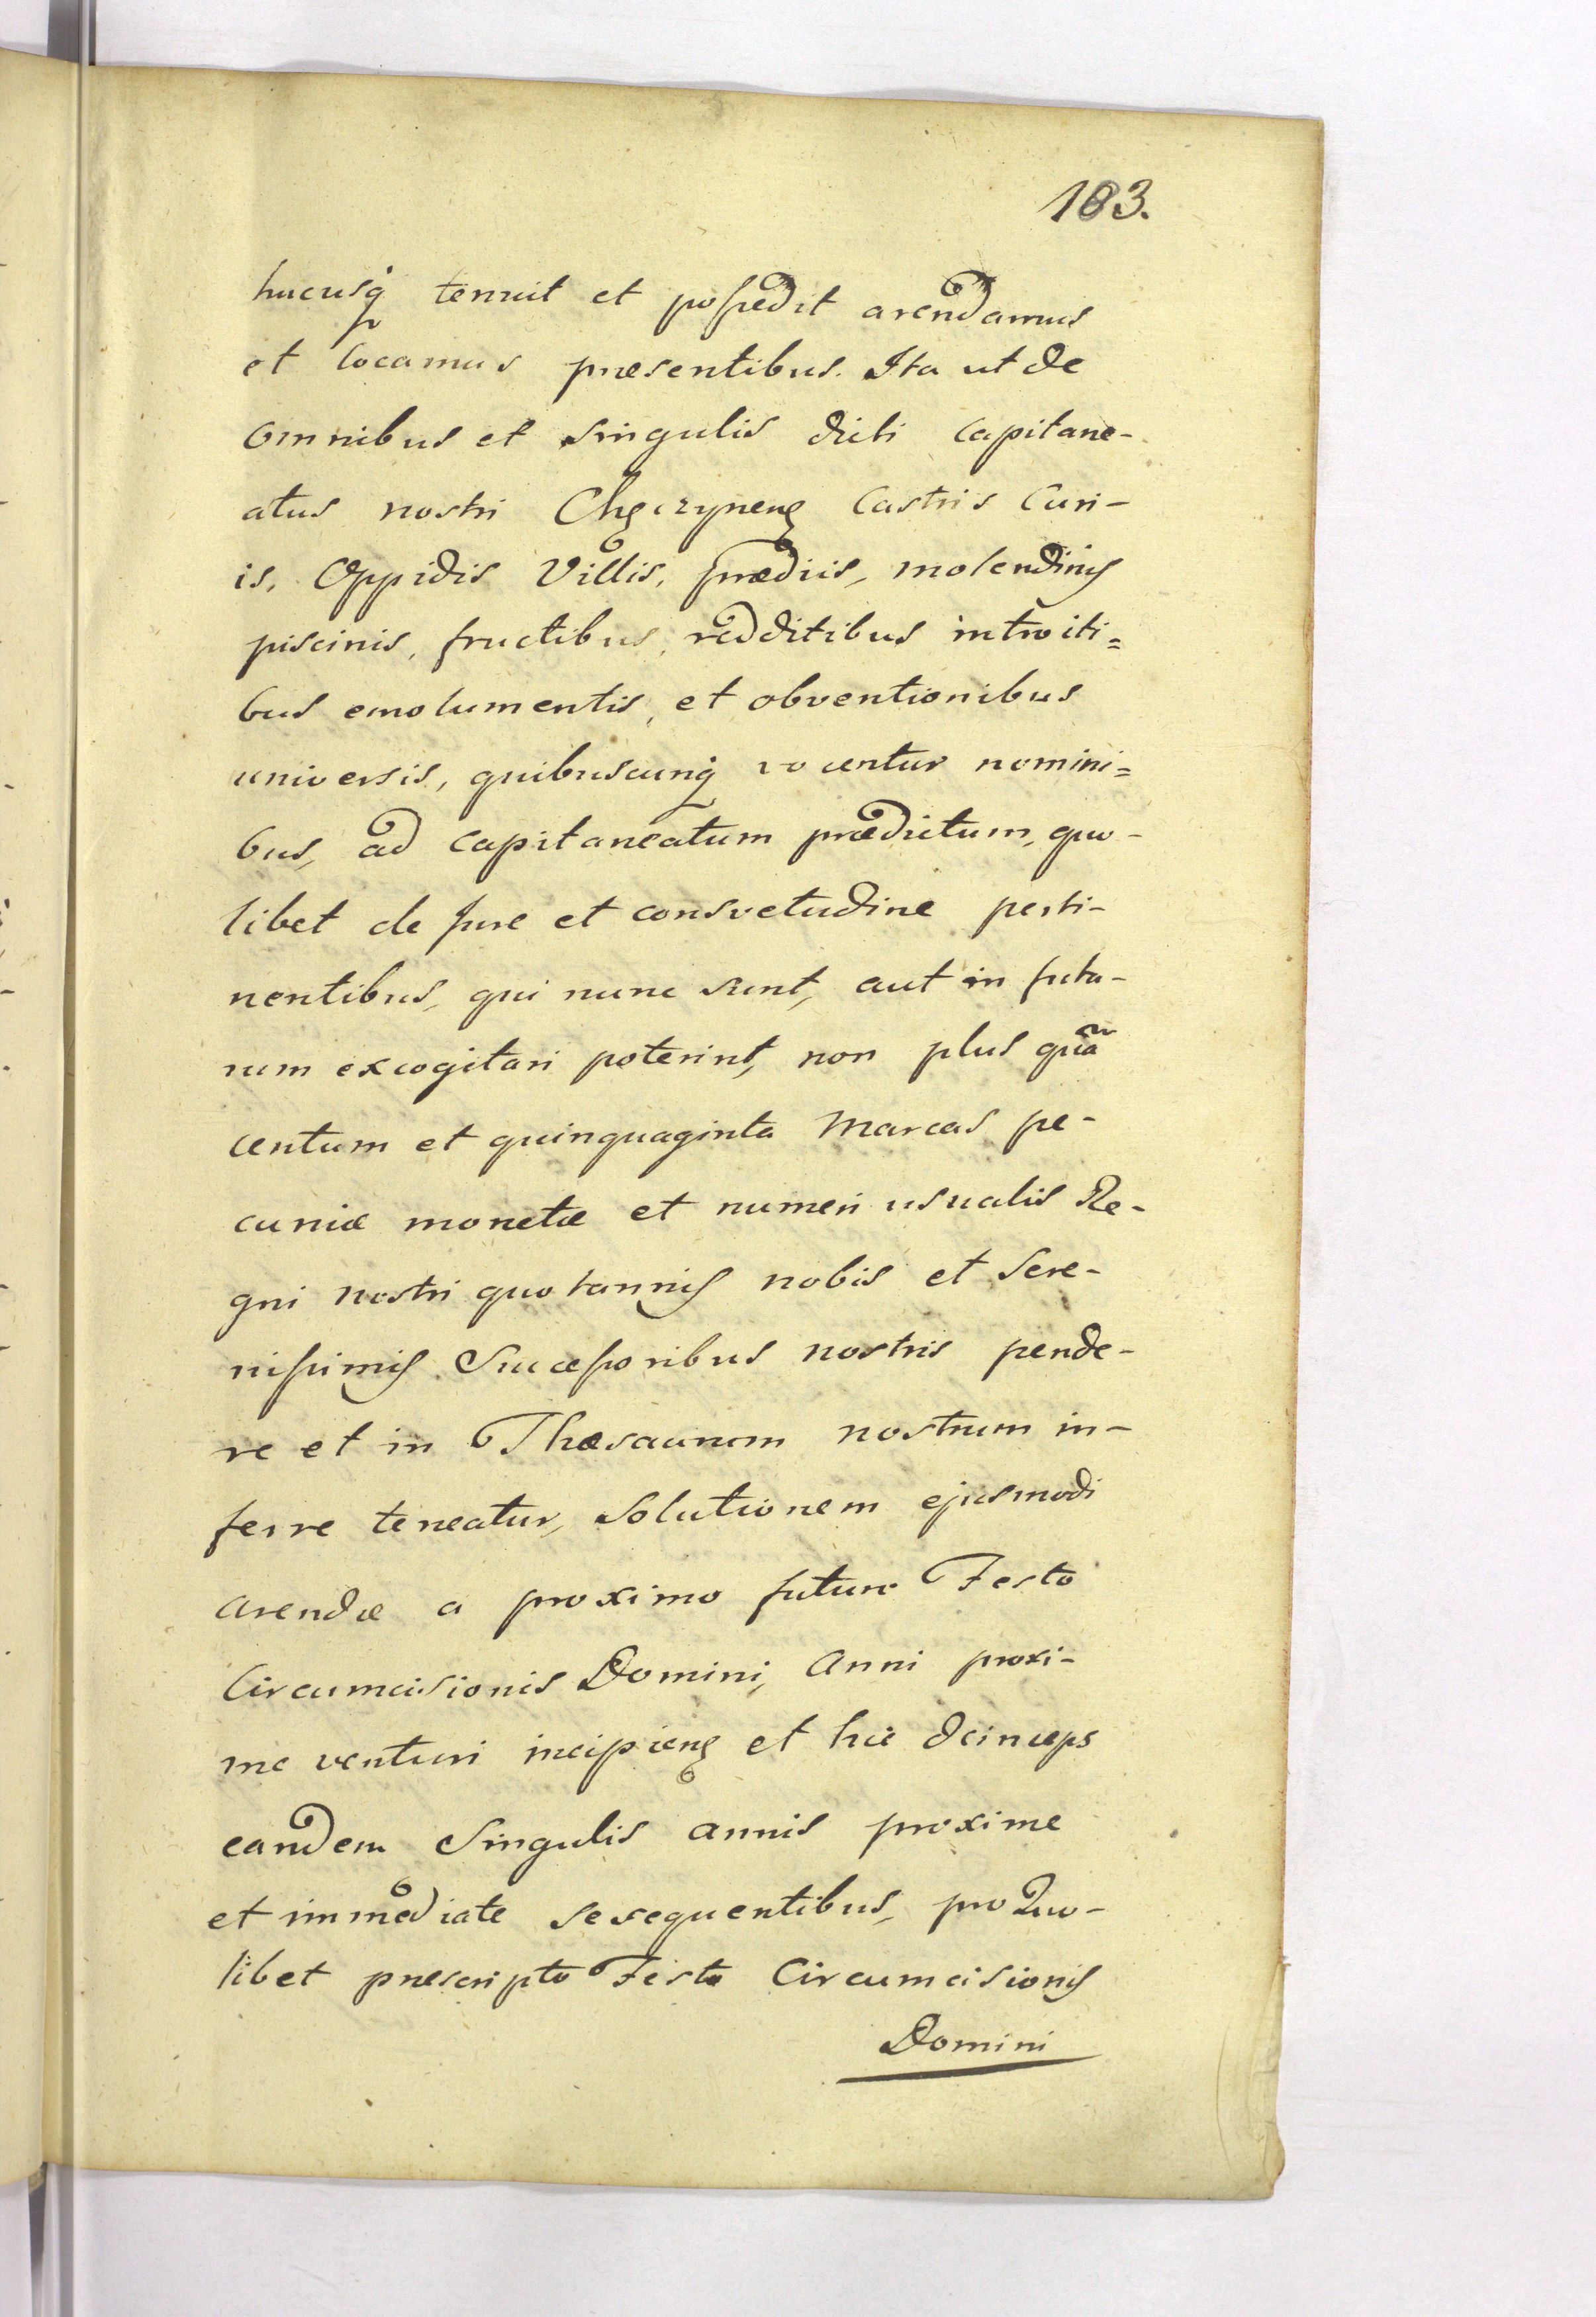 183.
hucusq tenuit et possedit arendamus
et locamus præsentibus. Ita ut de
omnibus et singulis dicti Capitane-
atus nostri Chęczynens Castris Curi-
is, Oppidis Villis, prædiis, molendinis
piscinis, fructibus, redditibus introiti=
bus emolumentis, et obventionibus
universis, quibuscunq vocentur nomini=
bus, ad Capitaneatum prædictum, quo-
libet de Jure et consvetudine perti-
nentibus, qui nunc sunt, aut in futu-
rum excogitari poterint, non plus quã
centum et quinquaginta Marcas pe-
cuniæ monetæ et numeri usualis Re-
gni nostri quotannis nobis et Sere-
nissimis Successoribus nostris pende-
re et in Thæsaurum nostrum in-
ferre teneatur, solutionem ejusmodi
arendæ a proximo futuro Festo
Circumcisionis Domini, Anni proxi-
me venturi incipiens et hic deinceps
eandem Singulis annis proxime
et immediate sesequentibus, pro Quo-
libet prescripto Festo Circumcisionis
Domini